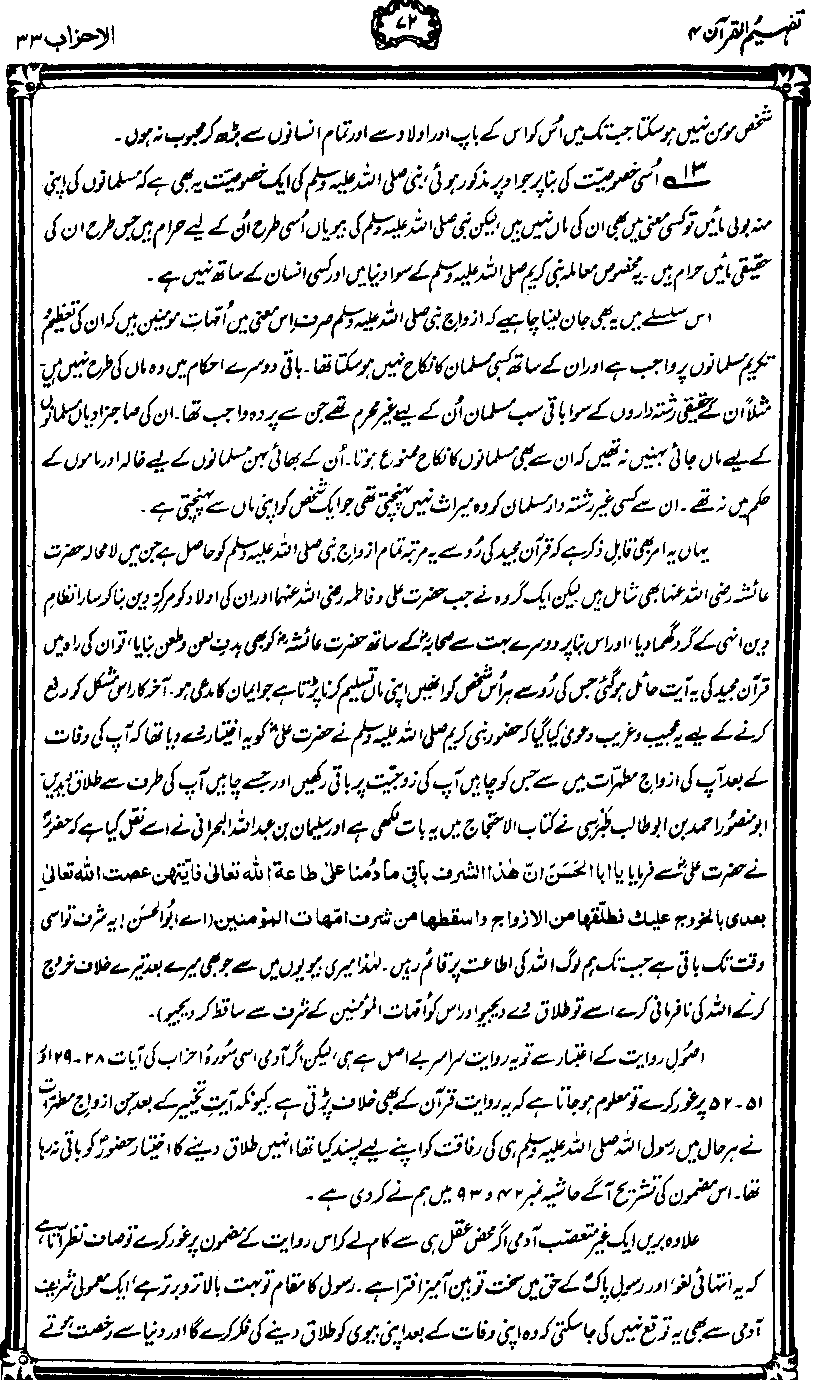 تفہیم القرآن ۴
۷۲
الاحزاب ۳۳
شخص مومن نہیں ہو سکتا جب تک میں اُس کو اس کے باپ اور اولاد سے اور تمام انسانوں سے بڑھ کر محبوب نہ ہوں۔
۱۳ اُسی خصوصیت کی بنا پر جو اوپر مذکور ہوئی، نبی صلی اللہ علیہ وسلم کی ایک خصوصیت یہ بھی ہے کہ مسلمانوں کی اپنی
منہ بولی مائیں تو کسی معنی میں بھی ان کی ماں نہیں ہیں، لیکن نبی صلی اللہ علیہ وسلم کی بیویاں اُسی طرح اُن کے لیے حرام ہیں جس طرح ان کی
حقیقی مائیں حرام ہیں۔ یہ مخصوص معاملہ نبی کریم صلی اللہ علیہ وسلم کے سوا دنیا میں اور کسی انسان کے ساتھ نہیں ہے۔
اس سلسلے میں یہ بھی جان لینا چاہیے کہ ازواج نبی صلی اللہ علیہ وسلم صرف اِس معنی میں اُمہات مومنین ہیں کہ ان کی تعظیم و
تکریم مسلمانوں پر واجب ہے اور ان کے ساتھ کسی مسلمان کا نکاح نہیں ہو سکتا تھا۔ باقی دوسرے احکام میں وہ ماں کی طرح نہیں ہیں۔
مثلاً ان کے حقیقی رشتہ داروں کے سوا باقی سب مسلمان اُن کے لیے غیر محرم تھے جن سے پردہ واجب تھا۔ ان کی صاحبزادیاں مسلمانوں
کے لیے ماں جائی بہنیں نہ تھیں کہ ان سے بھی مسلمانوں کا نکاح ممنوع ہوتا۔ اُن کے بھائی بہن مسلمانوں کے لیے خالہ اور ماموں کے
حکم میں نہ تھے۔ ان سے کسی غیر رشتہ دار مسلمان کو وہ میراث نہیں پہنچتی تھی جو ایک شخص کو اپنی ماں سے پہنچتی ہے۔
یہاں یہ امر بھی قابل ذکر ہے کہ قرآن مجید کی رُو سے یہ مرتبہ تمام ازواج نبی صلی اللہ علیہ وسلم کو حاصل ہے جن میں لا محالہ حضرت
عائشہ رضی اللہ عنہا بھی شامل ہیں لیکن ایک گروہ نے جب حضرت علی و فاطمہ رضی اللہ عنہما اور ان کی اولاد کو مرکزِ دین بنا کر سارا نظامِ
دین انہی کے گرد گھما دیا، اور اس بنا پر دوسرے بہت سے صحابہؓ کے ساتھ حضرت عائشہؓ کو بھی ہدفِ لعن و طعن بنایا، تو ان کی راہ میں
قرآن مجید کی یہ آیت حائل ہو گئی جس کی رُو سے ہر اُس شخص کو انھیں اپنی ماں تسلیم کرنا پڑتا ہے جو ایمان کا مدعی ہو۔ آخر کار اس مشکل کو رفع
کرنے کے لیے یہ عجیب و غریب دعویٰ کیا گیا کہ حضور نبی کریم صلی اللہ علیہ وسلم نے حضرت علیؓ کو یہ اختیار دے دیا تھا کہ آپ کی وفات
کے بعد آپ کی ازواج مطہرات میں سے جس کو چاہیں آپ کی زوجیت پر باقی رکھیں اور جسے چاہیں آپ کی طرف سے طلاق دے دیں۔
ابو منصور احمد بن ابو طالب طبرسی نے کتاب الاحتجاج میں یہ بات لکھی ہے اور سلیمان بن عبد اللہ البحرانی نے اسے نقل کیا ہے کہ حضورؐ
نے حضرت علیؓ سے فرمایا یا ابا الحسن انّ ھٰذا الشرف باقٍ ما دُمنا علیٰ طاعۃ اللہ تعالیٰ فایّتھن عصت اللہ تعالیٰ
بعدی بالخروج علیک فطلّقھا من الازواج واسقطھا من شرف امّھات المؤمنین (اے ابو الحسن! یہ شرف تو اسی
وقت تک باقی ہے جب تک ہم لوگ اللہ کی اطاعت پر قائم رہیں۔ لہٰذا میری بیویوں میں سے جو بھی میرے بعد تیرے خلاف خروج
کر کے اللہ کی نافرمانی کرے اسے تو طلاق دے دیجیو اور اس کو اُمہات المؤمنین کے شرف سے ساقط کر دیجیو)۔
اصُولِ روایت کے اعتبار سے تو یہ روایت سراسر بے اصل ہے ہی، لیکن اگر آدمی اسی سُورۂ احزاب کی آیات ۲۸-۲۹ اور
۵۱-۵۲ پر غور کرے تو معلوم ہو جاتا ہے کہ یہ روایت قرآن کے بھی خلاف پڑتی ہے۔ کیونکہ آیتِ تخییر کے بعد جن ازواج مطہرات
نے ہر حال میں رسول اللہ صلی اللہ علیہ وسلم ہی کی رفاقت کو اپنے لیے پسند کیا تھا انہیں طلاق دینے کا اختیار حضورؐ کو باقی نہ رہا
تھا۔ اس مضمون کی تشریح آگے حاشیہ نمبر ۴۲ و ۹۳ میں ہم نے کر دی ہے۔
علاوہ بریں ایک غیر متعصّب آدمی اگر محض عقل ہی سے کام لے کر اس روایت کے مضمون پر غور کرے تو صاف نظر آتا ہے
کہ یہ انتہائی لغو، اور رسولِ پاکؐ کے حق میں سخت توہین آمیز افترا ہے۔ رسول کا مقام تو بہت بالاتر و برتر ہے، ایک معمولی شریف
آدمی سے بھی یہ توقع نہیں کی جا سکتی کہ وہ اپنی وفات کے بعد اپنی بیوی کو طلاق دینے کی فکر کرے گا اور دنیا سے رخصت ہوتے